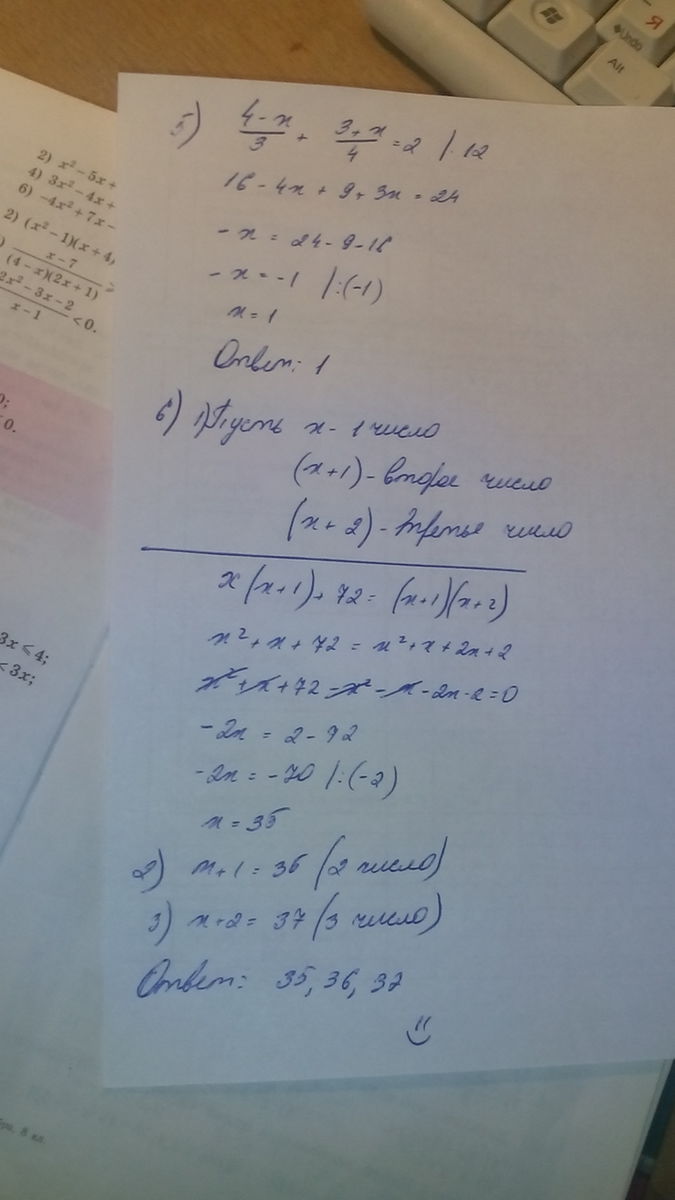 Я
Undo
Alt
2) x² - 5x +
4) 3x² - 4x +
6) -4x² + 7x -
2) (x² - 1)(x + 4)
x - 7
(4 - x)(2x + 1)
2x² - 3x - 2
x - 1
< 0.
0;
0.
3x ⩽ 4;
< 3x;
8 кл.
5) (4-x)/3 + (3+x)/4 = 2 |·12
16 - 4x + 9 + 3x = 24
- x = 24 - 9 - 16
- x = -1 |:(-1)
x = 1
Ответ: 1
6) 1) Пусть x - 1 число
(x+1) - второе число
(x+2) - третье число
x(x+1) + 72 = (x+1)(x+2)
x² + x + 72 = x² + x + 2x + 2
x² + x + 72 - x² - x - 2x - 2 = 0
-2x = 2 - 72
-2x = -70 |:(-2)
x = 35
2) x+1 = 36 (2 число)
3) x+2 = 37 (3 число)
Ответ: 35, 36, 37